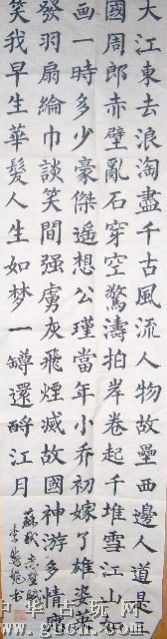 大江東去浪淘盡千古風流人物故壘西邊人道是三
國周郎赤壁亂石穿空驚濤拍岸卷起千堆雪江山如
画一時多少豪傑遥想公瑾當年小乔初嫁了雄姿英
發羽扇綸巾談笑間强虜灰飛煙滅故國神游多情應
笑我早生華髮人生如梦一罇還酹江月
蘇軾赤壁
李 书
中华古玩网
www.gucn.com